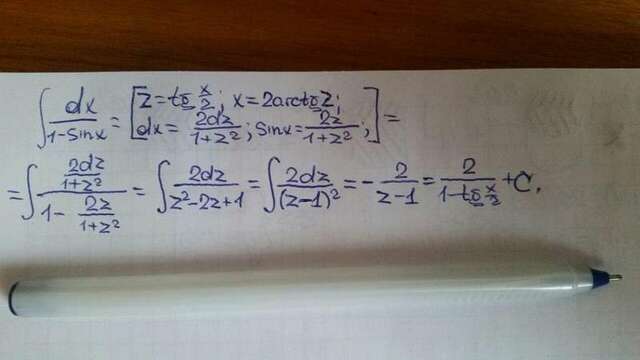 ∫ dx/(1-sinx) = [z=tg x/2; x=2arctgz;
dx= 2dz/(1+z²); sinx= 2z/(1+z²);] =
=∫ (2dz/(1+z²))/(1- 2z/(1+z²)) = ∫ 2dz/(z²-2z+1) = ∫ 2dz/(z-1)² = - 2/(z-1) = 2/(1-tg x/2) +C.